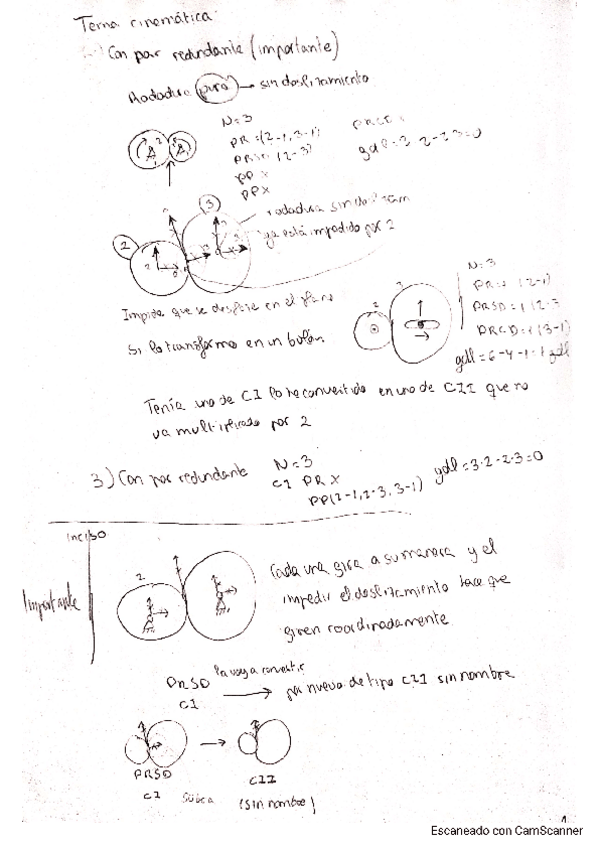 Tema cinemática
Con par redundante (importante)
Rodadura (pura) → sin deslizamiento
N=3
PR:(2-1,3-1)
PRSD (2-3)
PP x
PPX
gdl=3·2-2·3=0
2
3
rodadura sin
ya está impedido por 2
Impide que se desplace en el plano
Si lo transformo en un bulón
2
3
N=3
PR=1 (2-1)
PRSD=1 (2-3
PRCD=1 (3-1)
gdl=6-4-1=1 gdl
Tenía uno de CI lo he convertido en uno de CII que no
va multiplicado por 2
3) Con par redundante
N=3
CI PR X
PP(2-1,2-3,3-1)
gdl=3·2-2·3=0
INCISO
Importante
2
Cada una gira a su manera y el
impedir el deslizamiento hace que
giren coordinadamente
PRSD
CI
la voy a convertir
→
par nuevo de tipo CII sin nombre
→
PRSD
CI
CII
(sin nombre)
1
Escaneado con CamScanner